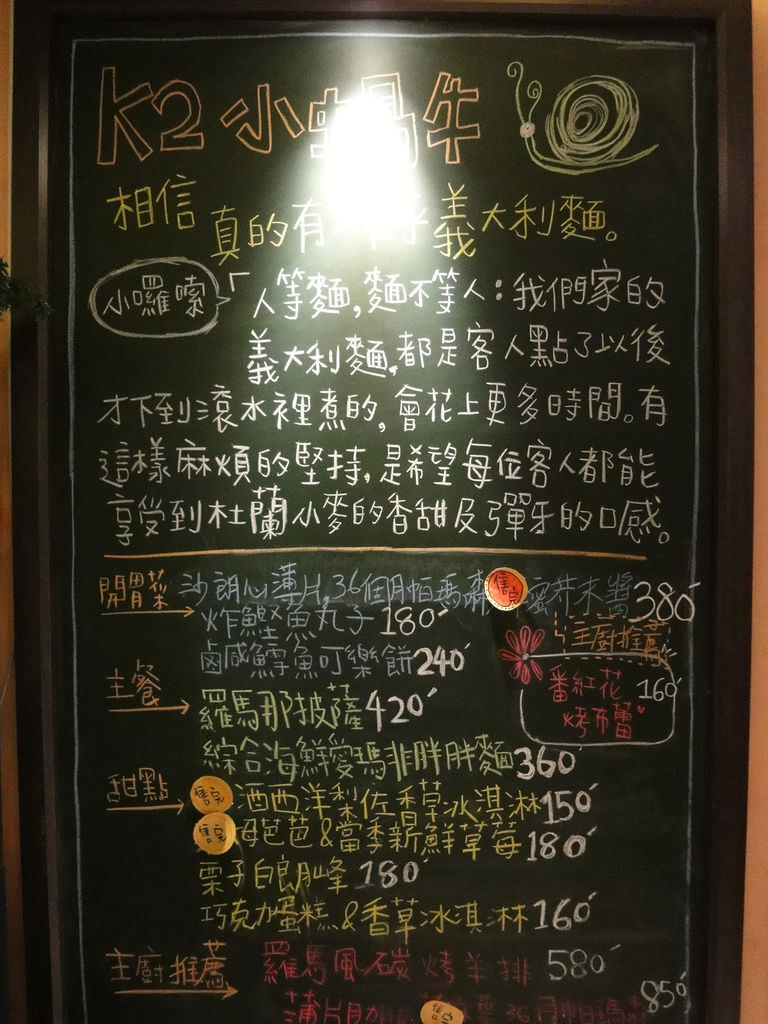 K2 小蝸牛
相信 真的有 義大利麵。
小囉嗦
「人等麵,麵不等人:我們家的
義大利麵,都是客人點了以後
才下到滾水裡煮的,會花上更多時間。有
這樣麻煩的堅持,是希望每位客人都能
享受到杜蘭小麥的香甜及彈牙的口感。
開胃菜
沙朗心薄片,36個月帕瑪森 售完 蜜芥末醬380
炸鰹魚丸子180
鹵咸鱈魚可樂餅240
主廚推薦
番紅花 160
烤布蕾
主餐
羅馬那披薩420
綜合海鮮愛瑪非胖胖麵360
甜點
售完 酒西洋梨佐香草冰淇淋150
售完 芭芭&當季新鮮草莓180
栗子白朗峰 180
巧克力蛋糕&香草冰淇淋160
主廚推薦
羅馬風碳烤羊排 580
薄片 售完 36個月帕瑪森 850